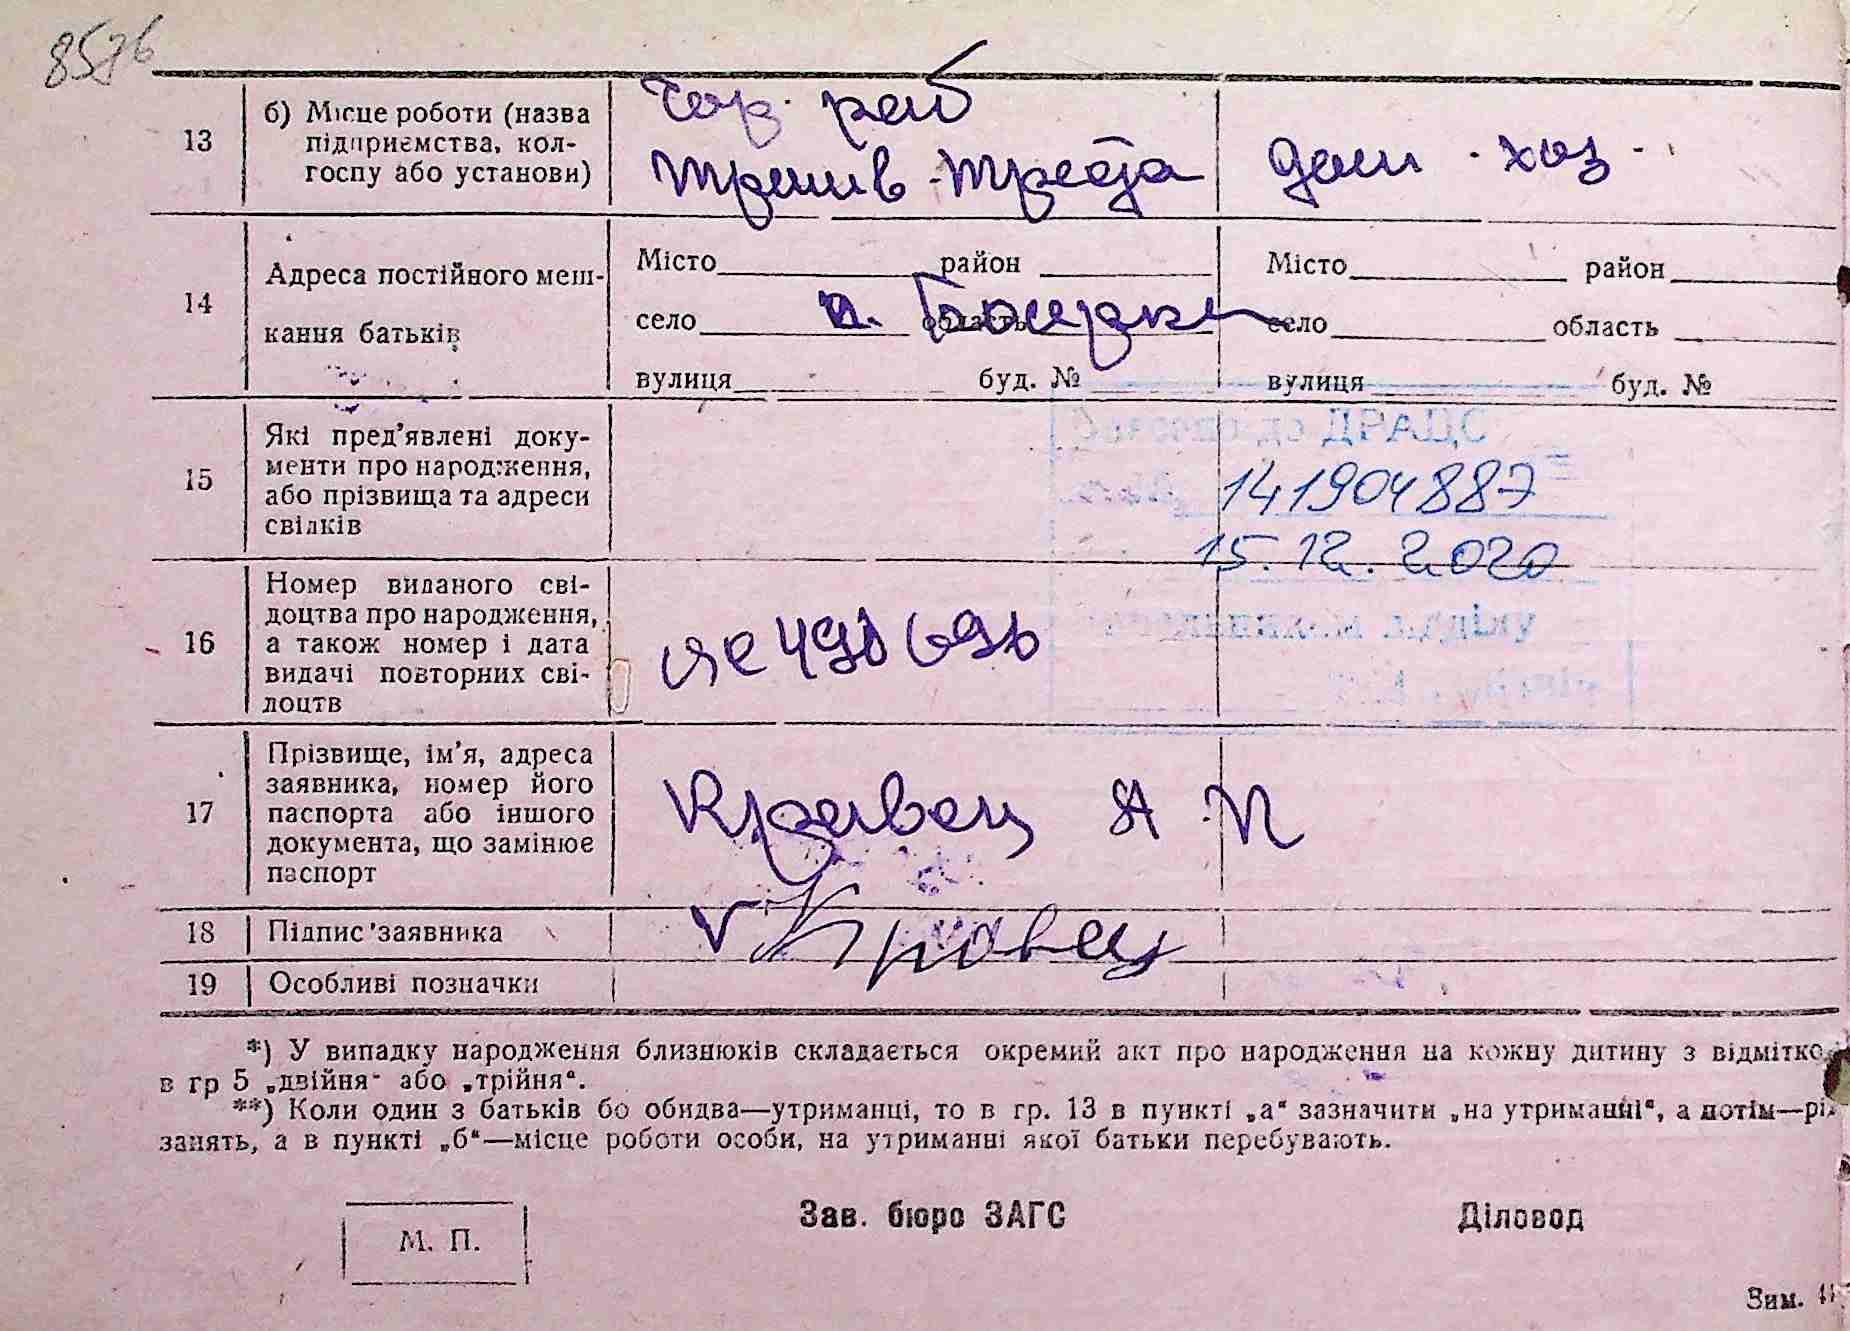 8576
13
б) Місце роботи (назва
підприємства, кол-
госпу або установи)
Чор. раб
дом. хоз.
14
Адреса постійного меш-
кання батьків
Місто район
село область
вулиця буд. №
Місто район
село область
вулиця буд. №
15
Які пред’явлені доку-
менти про народження,
або прізвища та адреси
свідків
до ДРАЦС
141904887
15.12.2020
відділу
16
Номер виданого сві-
доцтва про народження,
а також номер і дата
видачі повторних сві-
доцтв
17
Прізвище, ім’я, адреса
заявника, номер його
паспорта або іншого
документа, що замінює
паспорт
Кравец А П
18
Підпис заявника
Кравец
19
Особливі позначки
*) У випадку народження близнюків складається окремий акт про народження на кожну дитину з відмітко
в гр 5 „двійня“ або „трійня“.
**) Коли один з батьків бо обидва—утриманці, то в гр. 13 в пункті „а“ зазначити „на утриманні“, а потім—рі
занять, а в пункті „б“—місце роботи особи, на утриманні якої батьки перебувають.
М. П.
Зав. бюро ЗАГС
Діловод
Зим.